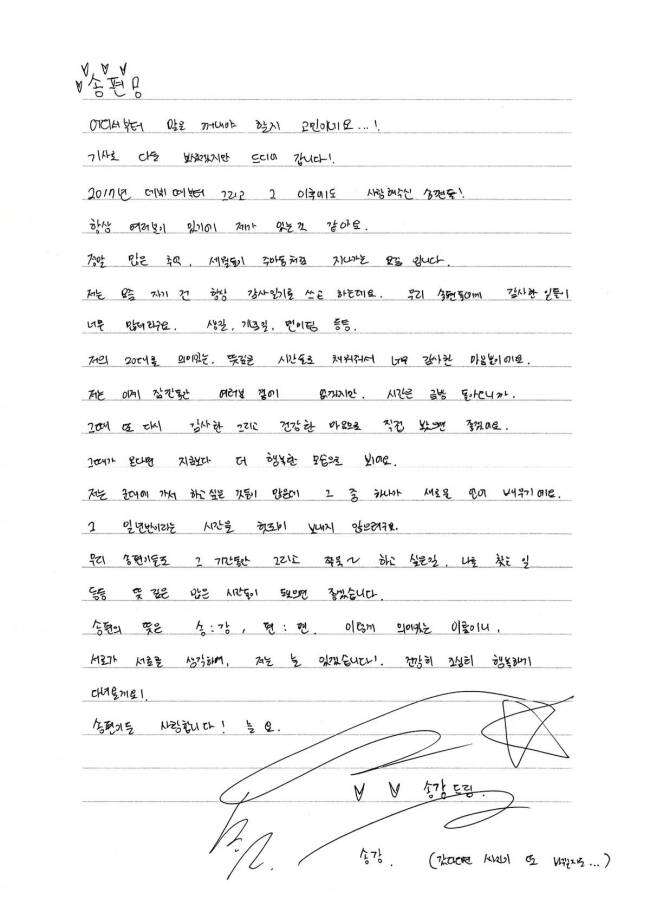 송편💌
어디서부터 말을 꺼내야 할지 고민이네요...!
기사로 다들 보셨겠지만 드디어 갑니다!
2017년 데뷔 때부터 그리고 그 이후에도 사랑해주신 송편들!
항상 여러분이 있기에 제가 있는 것 같아요.
정말 많은 추억, 세월들이 주마등처럼 지나가는 요즘 입니다.
저는 요즘 자기 전 항상 감사일기를 쓰곤 하는데요. 우리 송편들에게 감사한 일들이
너무 많더라구요. 생일, 기념일, 팬미팅 등등.
저의 20대를 의미있는, 뜻깊은 시간들로 채워줘서 너무 감사한 마음뿐이에요.
저는 이제 잠깐동안 여러분 곁에 없겠지만, 시간은 금방 돌아오니까.
그때 또 다시 감사한 그리고 건강한 마음으로 직접 봤으면 좋겠어요.
그때가 온다면 지금보다 더 행복한 모습으로 봐요.
저는 군대에 가서 하고 싶은 것들이 많은데 그 중 하나가 새로운 언어 배우기에요.
그 일년반이라는 시간을 헛되이 보내지 않으려구요.
우리 송편이들도 그 기간동안 그리고 쭈욱~ 하고 싶은일, 나를 찾는 일
등등 뜻 깊은 많은 시간들이 됐으면 좋겠습니다.
송편의 뜻은 송:강, 편:편. 이렇게 의미있는 이름이니,
서로가 서로를 생각하며, 저는 늘 있겠습니다!. 건강히 조심히 행복하게
다녀올게요!
송편이들 사랑합니다! 늘 요.
송강 드림.
송강. (갔다오면 싸인이 또 바뀔지도...)